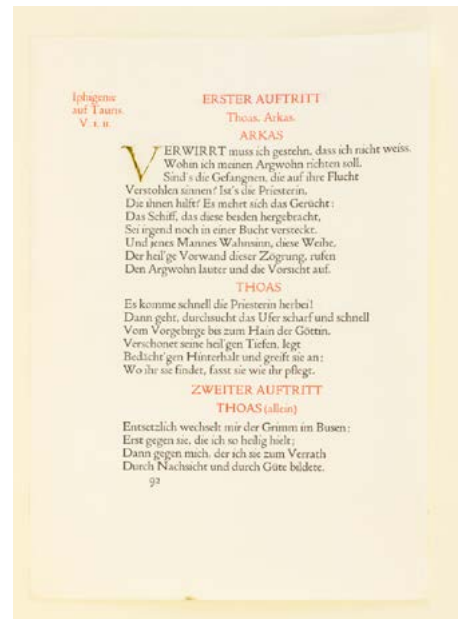 Iphigenie
auf Tauris.
V. I. II.
ERSTER AUFTRITT
Thoas. Arkas.
ARKAS
VERWIRRT muss ich gestehn, dass ich nicht weiss.
Wohin ich meinen Argwohn richten soll.
Sind's die Gefangnen, die auf ihre Flucht
Verstohlen sinnen? Ist's die Priesterin,
Die ihnen hilft? Es mehrt sich das Gerücht:
Das Schiff, das diese beiden hergebracht,
Sei irgend noch in einer Bucht versteckt.
Und jenes Mannes Wahnsinn, diese Weihe,
Der heil'ge Vorwand dieser Zögrung, rufen
Den Argwohn lauter und die Vorsicht auf.
THOAS
Es komme schnell die Priesterin herbei!
Dann geht, durchsucht das Ufer scharf und schnell
Vom Vorgebirge bis zum Hain der Göttin.
Verschonet seine heil'gen Tiefen, legt
Bedächt'gen Hinterhalt und greift sie an;
Wo ihr sie findet, fasst sie wie ihr pflegt.
ZWEITER AUFTRITT
THOAS (allein)
Entsetzlich wechselt mir der Grimm im Busen:
Erst gegen sie, die ich so heilig hielt;
Dann gegen mich, der ich sie zum Verrath
Durch Nachsicht und durch Güte bildete.
92